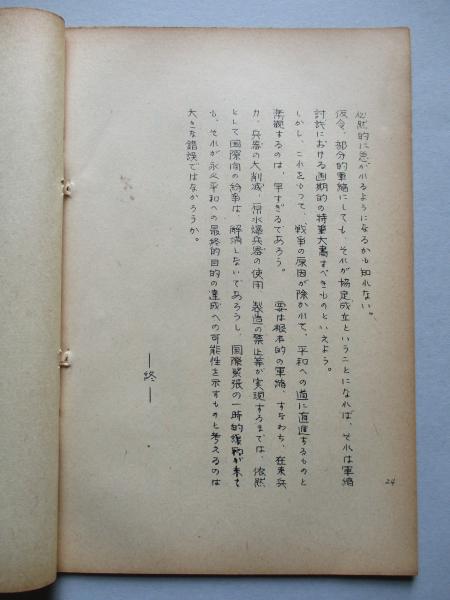 必然的に急がれるようになるかも知れない。
仮令、部分的軍縮にしても、それが協定成立ということになれば、それは軍縮
討議における画期的の特筆大書すべきものといえよう。
しかし、これをもつて、戦争の原因が除かれて、平和への道に直進するものと
楽観するのは、早すぎるであろう。 要は根本的の軍縮、すなわち、在来兵
力、兵器の大削減、原水爆兵器の使用 製造の禁止等が実現するまでは、依然
として国際間の紛争は、解消しないであろうし、国際緊張の一時的緩和が来ても
も、それが永久平和への最終的目的の達成への可能性を示すものと考えるのは
大きな錯誤ではなかろうか。
―終―
24